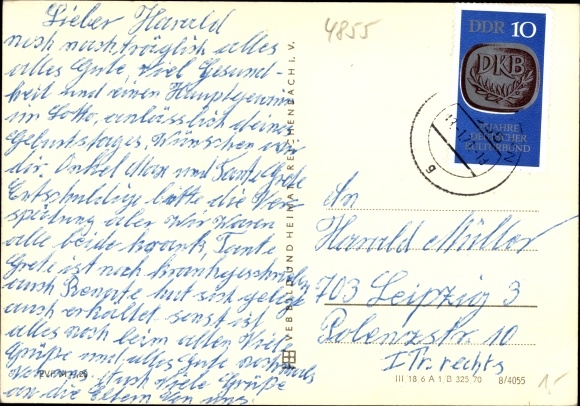 Lieber Harald
noch nachträglich alles
alles Gute, viel Gesund-
heit und einen Hauptgewinn
im Lotto, anlässlich deines
Geburtstages, Wünschen wir
dir. Onkel Max und Tante Grete
Entschuldige bitte die Ver-
spätung aber Wir Waren
alle beide krank, Tante
Grete ist noch krankgeschrieben
auch Renate hat sich
auch erkältet sonst ist
alles noch beim alten Viele
Grüße und alles Gute nochmals
Auch Viele Grüße
an die Eltern Von uns.
4855
DDR 10
DKB
JAHRE
DEUTSCHER
KULTURBUND
VEB BILD UND HEIMAT REICHENBACH I. V.
An
Harald Müller
703 Leipzig 3
Polenzstr. 10
I Tr. rechts
III 18 6 A 1 B 325 70 8/4055
1,-